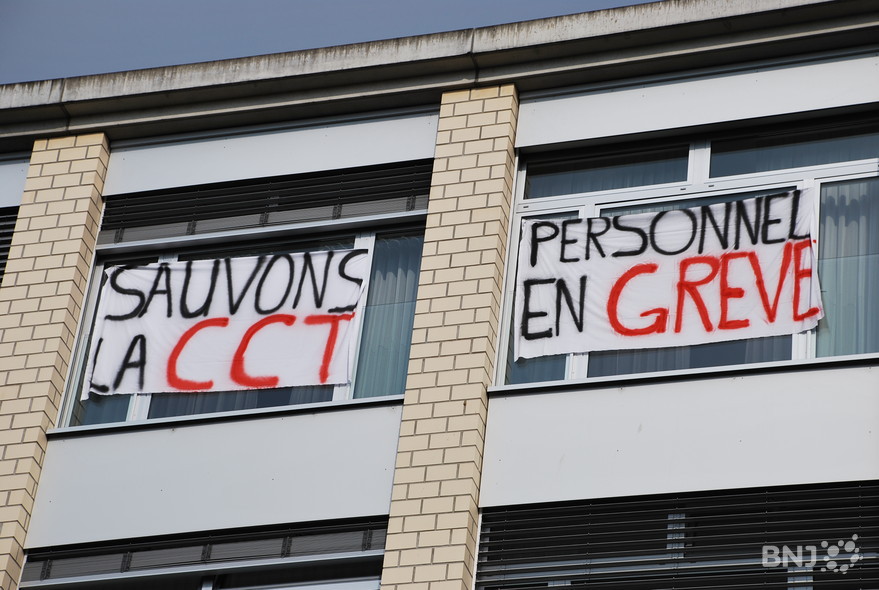 SAUVONS
LA CCT
PERSONNEL
EN GREVE
BNJ